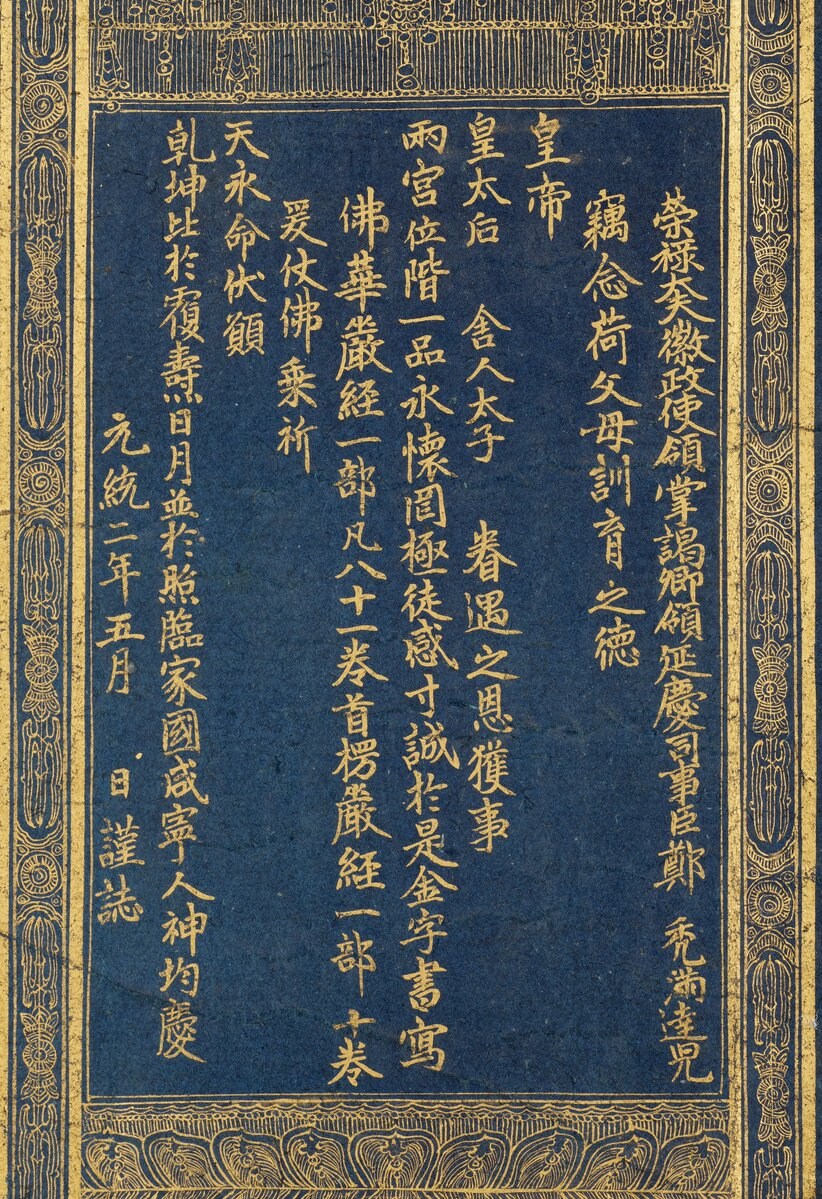 榮禄大夫徽政使領掌謁卿領延慶司事臣鄭 禿滿達兒
竊念荷父母訓育之德
皇帝
皇太后 舍人太子 眷遇之恩獲事
兩宮位階一品永懷罔極徒感寸誠於是金字書寫
佛華嚴經一部凡八十一卷首楞嚴經一部十卷
爰仗佛乘祈
天永命伏願
乾坤比於覆燾日月並於照臨家國咸寧人神均慶
元統二年五月 日謹誌